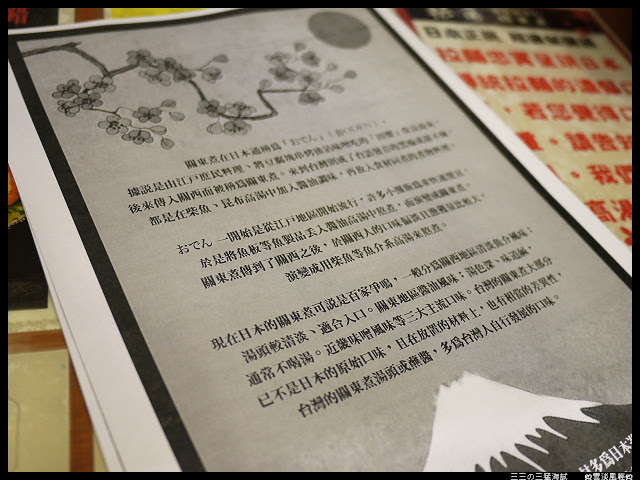 關東煮在日本通稱為「おでん」
據說是由江戶庶民料理
後來傳入關西而被稱為關東煮。來到台灣則成了台語發音的黑輪或甜不辣。
都是在柴魚、昆布高湯中加入醬油調味,再放入食材同煮的煮物料理。
おでん 一開始是從江戶地區開始流行,許多小攤販為求快速便宜,
於是將魚板等魚製品丟入醬油高湯中熬煮,而演變成關東煮。
關東煮傳到了關西之後,於關西人的口味偏淡且
演變成用柴魚等魚介系高湯來熬煮。
現在日本的關東煮可說是百家爭鳴,一般分為關西地區清淡魚介風味:
湯頭較清淡、適合入口。關東地區醬油風味:湯色深、味道鹹,
通常不喝湯。近畿味噌風味等三大主流口味。台灣的關東煮大部分
已不是日本的原始口味,且在放置的材料上,也有相當的差異性,
台灣的關東煮湯頭或蘸醬,多為台灣人自行發展的口味。
多為日本
日本正宗
拉麵忠實呈現日本
傳統拉麵的濃
若您覺得口
重,請告
我們
高湯
三三の三猛海賊
@雲淡風輕@